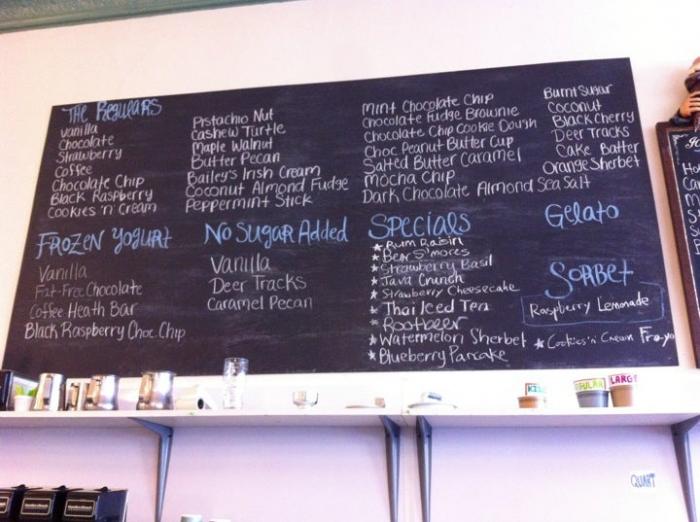 The Regulars
Vanilla
Chocolate
Strawberry
Coffee
Chocolate Chip
Black Raspberry
Cookies 'n' Cream
Pistachio Nut
Cashew Turtle
Maple Walnut
Butter Pecan
Bailey's Irish Cream
Coconut Almond Fudge
Peppermint Stick
Mint Chocolate Chip
Chocolate Fudge Brownie
Chocolate Chip Cookie Dough
Choc Peanut Butter Cup
Salted Butter Caramel
Mocha Chip
Dark Chocolate Almond Sea Salt
Burnt Sugar
Coconut
Black Cherry
Deer Tracks
Cake Batter
Orange Sherbet
Frozen Yogurt
Vanilla
Fat-Free Chocolate
Coffee Heath Bar
Black Raspberry Choc. Chip
No Sugar Added
Vanilla
Deer Tracks
Caramel Pecan
Specials
Rum Raisin
Bear S'mores
Strawberry Basil
Java Crunch
Strawberry Cheesecake
Thai Iced Tea
Rootbeer
Watermelon Sherbet
Blueberry Pancake
Gelato
Sorbet
Raspberry Lemonade
Cookies 'n' Cream Fro-yo
LARGE
QUART